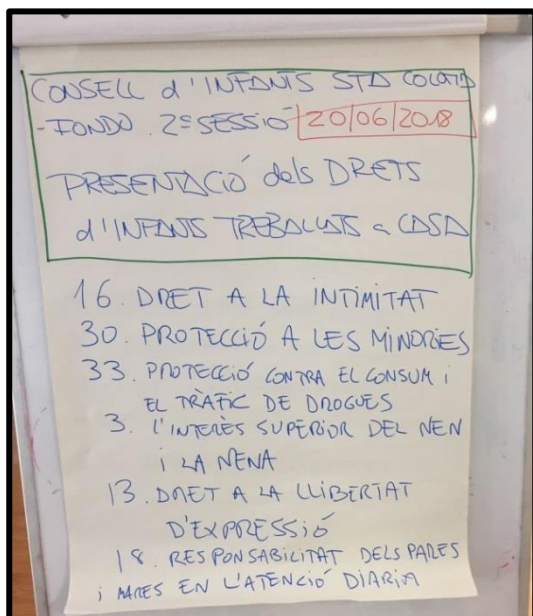 CONSELL d'INFANTS STA COLOMA
-FONDO. 2ª SESSIÓ 20/06/2018
PRESENTACIÓ dels DRETS
d'INFANTS TREBALLATS a CASA
16. DRET A LA INTIMITAT
30. PROTECCIÓ A LES MINORIES
33. PROTECCIÓ CONTRA EL CONSUM i
EL TRÀFIC DE DROGUES
3. L'INTERÈS SUPERIOR DEL NEN
i LA NENA
13. DRET A LA LLIBERTAT
D'EXPRESSIÓ
18. RESPONSABILITAT DELS PARES
i MARES EN L'ATENCIÓ DIÀRIA